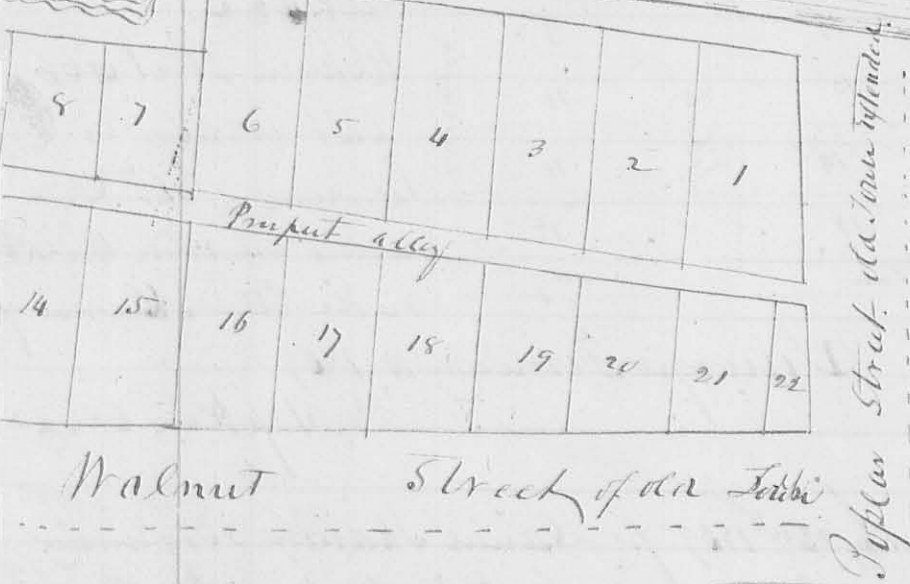 8 7 6 5 4 3 2 1
Prospect alley
14 15 16 17 18 19 20 21 22
Walnut Street of old Town
Poplar Street old Town extended.